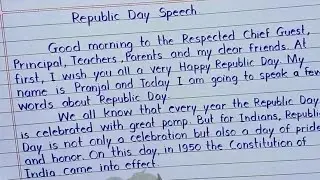 Republic Day Speech
Good morning to the Respected Chief Guest,
Principal, Teachers, Parents and my dear friends. At
first, I wish you all a very Happy Republic Day. My
name is Pranjal and Today I am going to speak a few
words about Republic Day.
We all know that every year the Republic Day
is celebrated with great pomp. But for Indians, Republic
Day is not only a celebration but also a day of pride
and honor. On this day, in 1950 the Constitution of
India came into effect.